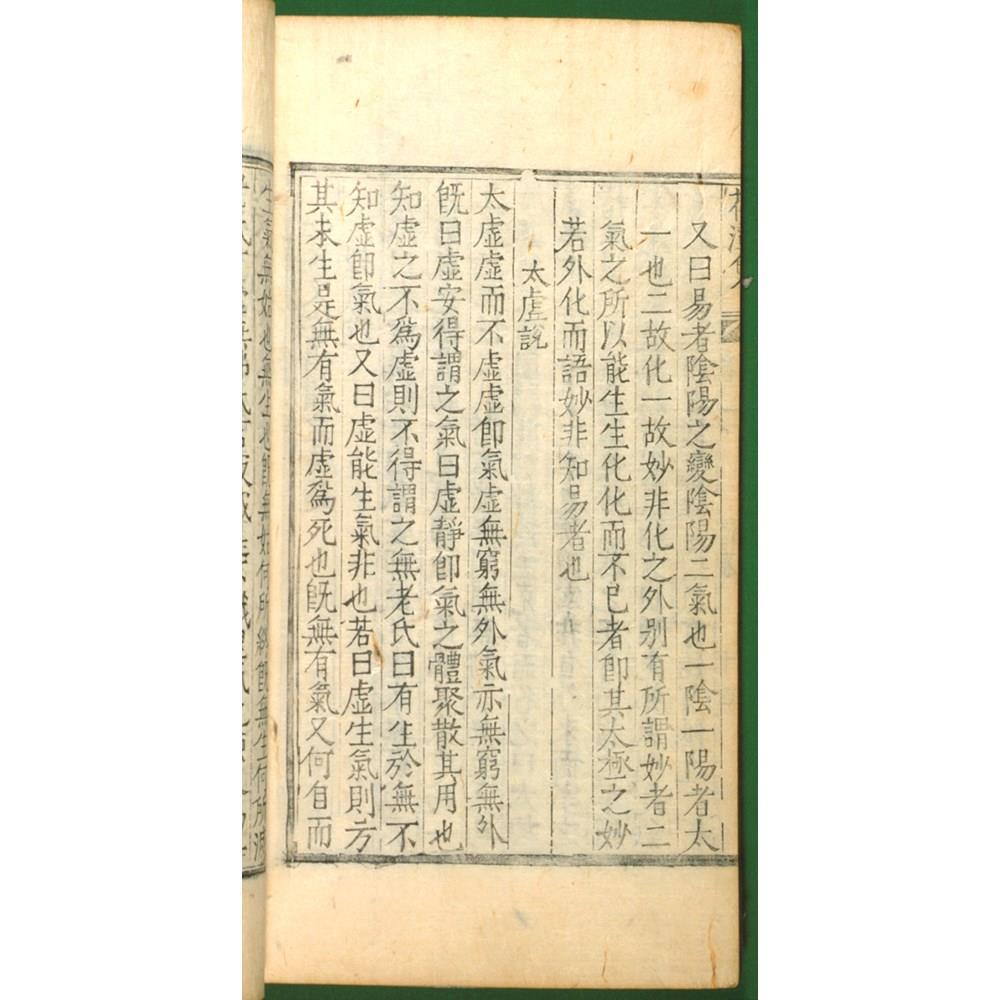 又曰易者陰陽之變陰陽二氣也一陰一陽者太
一也二故化一故妙非化之外别有所謂妙者二
氣之所以能生生化化而不已者卽其太極之妙
若外化而語妙非知易者也
太虛說
太虛虛而不虛虛卽氣虛無窮無外氣亦無窮無外
旣曰虛安得謂之氣曰虛靜卽氣之體聚散其用也
知虛之不爲虛則不得謂之無老氏曰有生於無不
知虛卽氣也又曰虛能生氣非也若曰虛生氣則方
其未生是無有氣而虛爲死也旣無有氣又何自而
生氣無始也無生也旣無始何所終旣無生何所滅